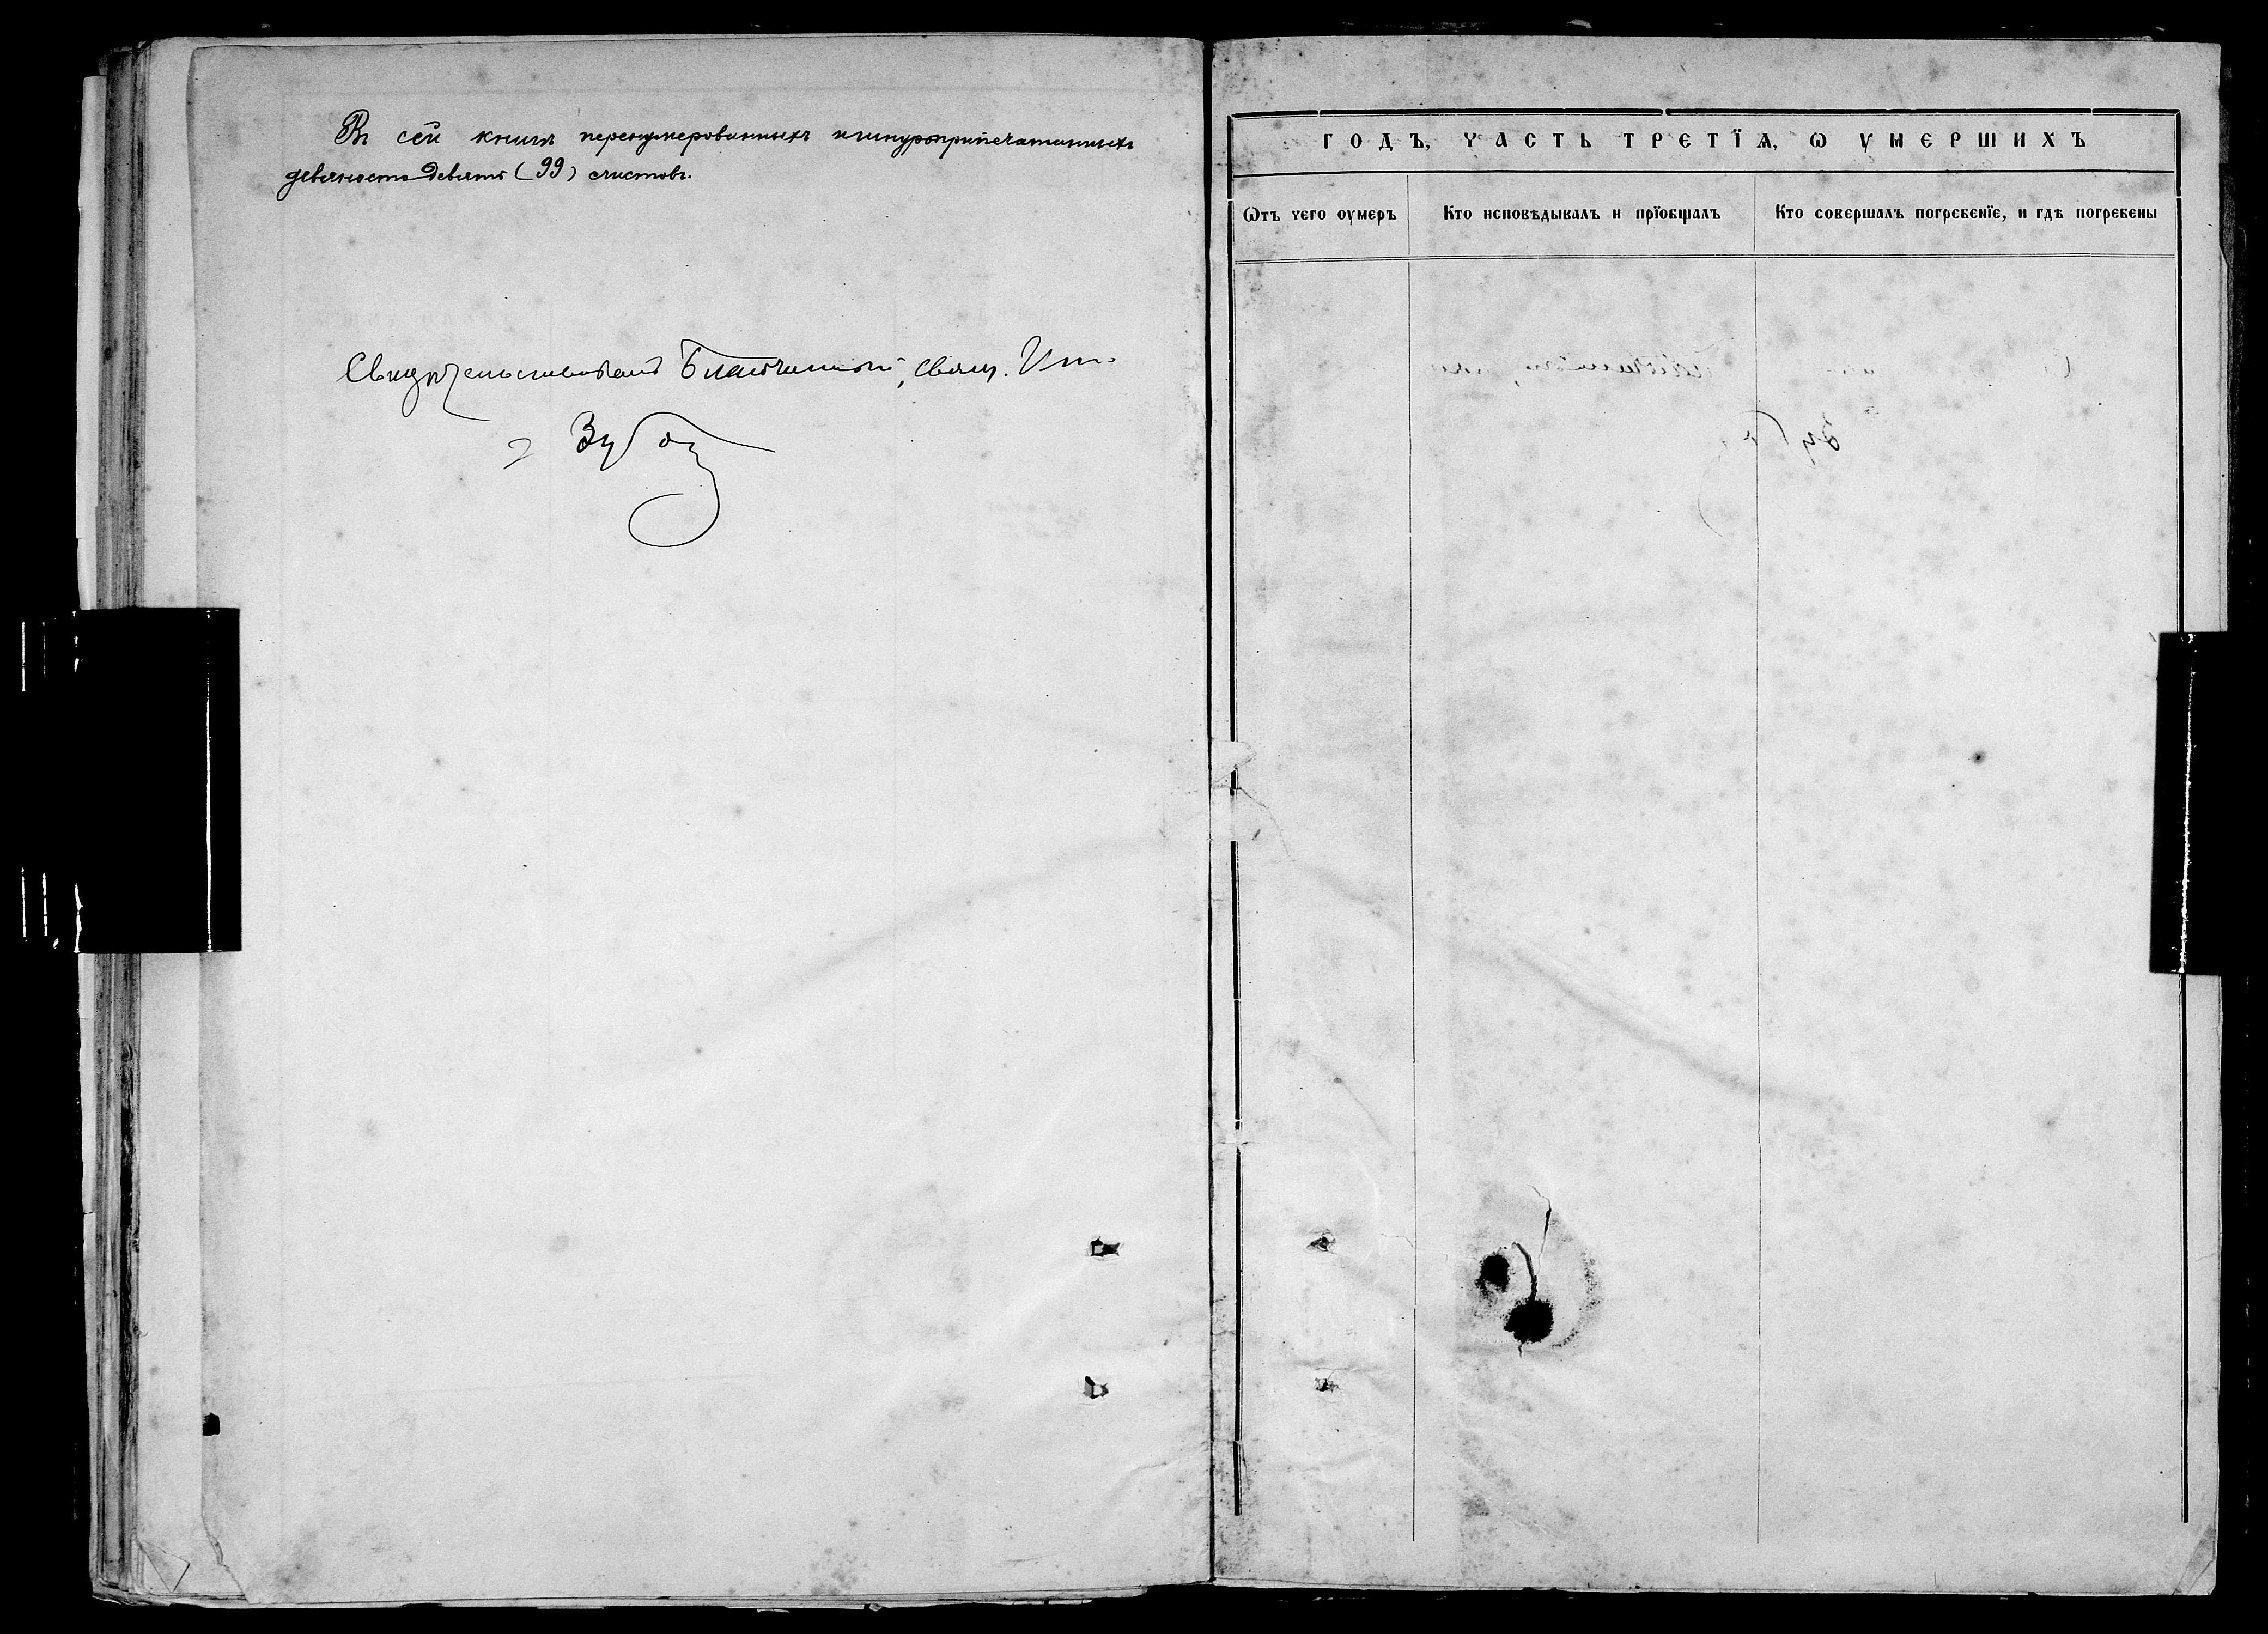 Въ сей книгѣ перенумерованныхъ и шнуроприпечатанныхъ
девяносто девять (99) листовъ.
Свидѣтельствовалъ Благочинный, свящ.
ГОДЪ, ЧАСТЬ ТРЕТЇѦ, Ѡ УМЕРШИХЪ
Ѿтъ чего оумеръ Кто исповѣдывалъ и прїобщалъ Кто совершалъ погребенїе, и гдѣ погребены